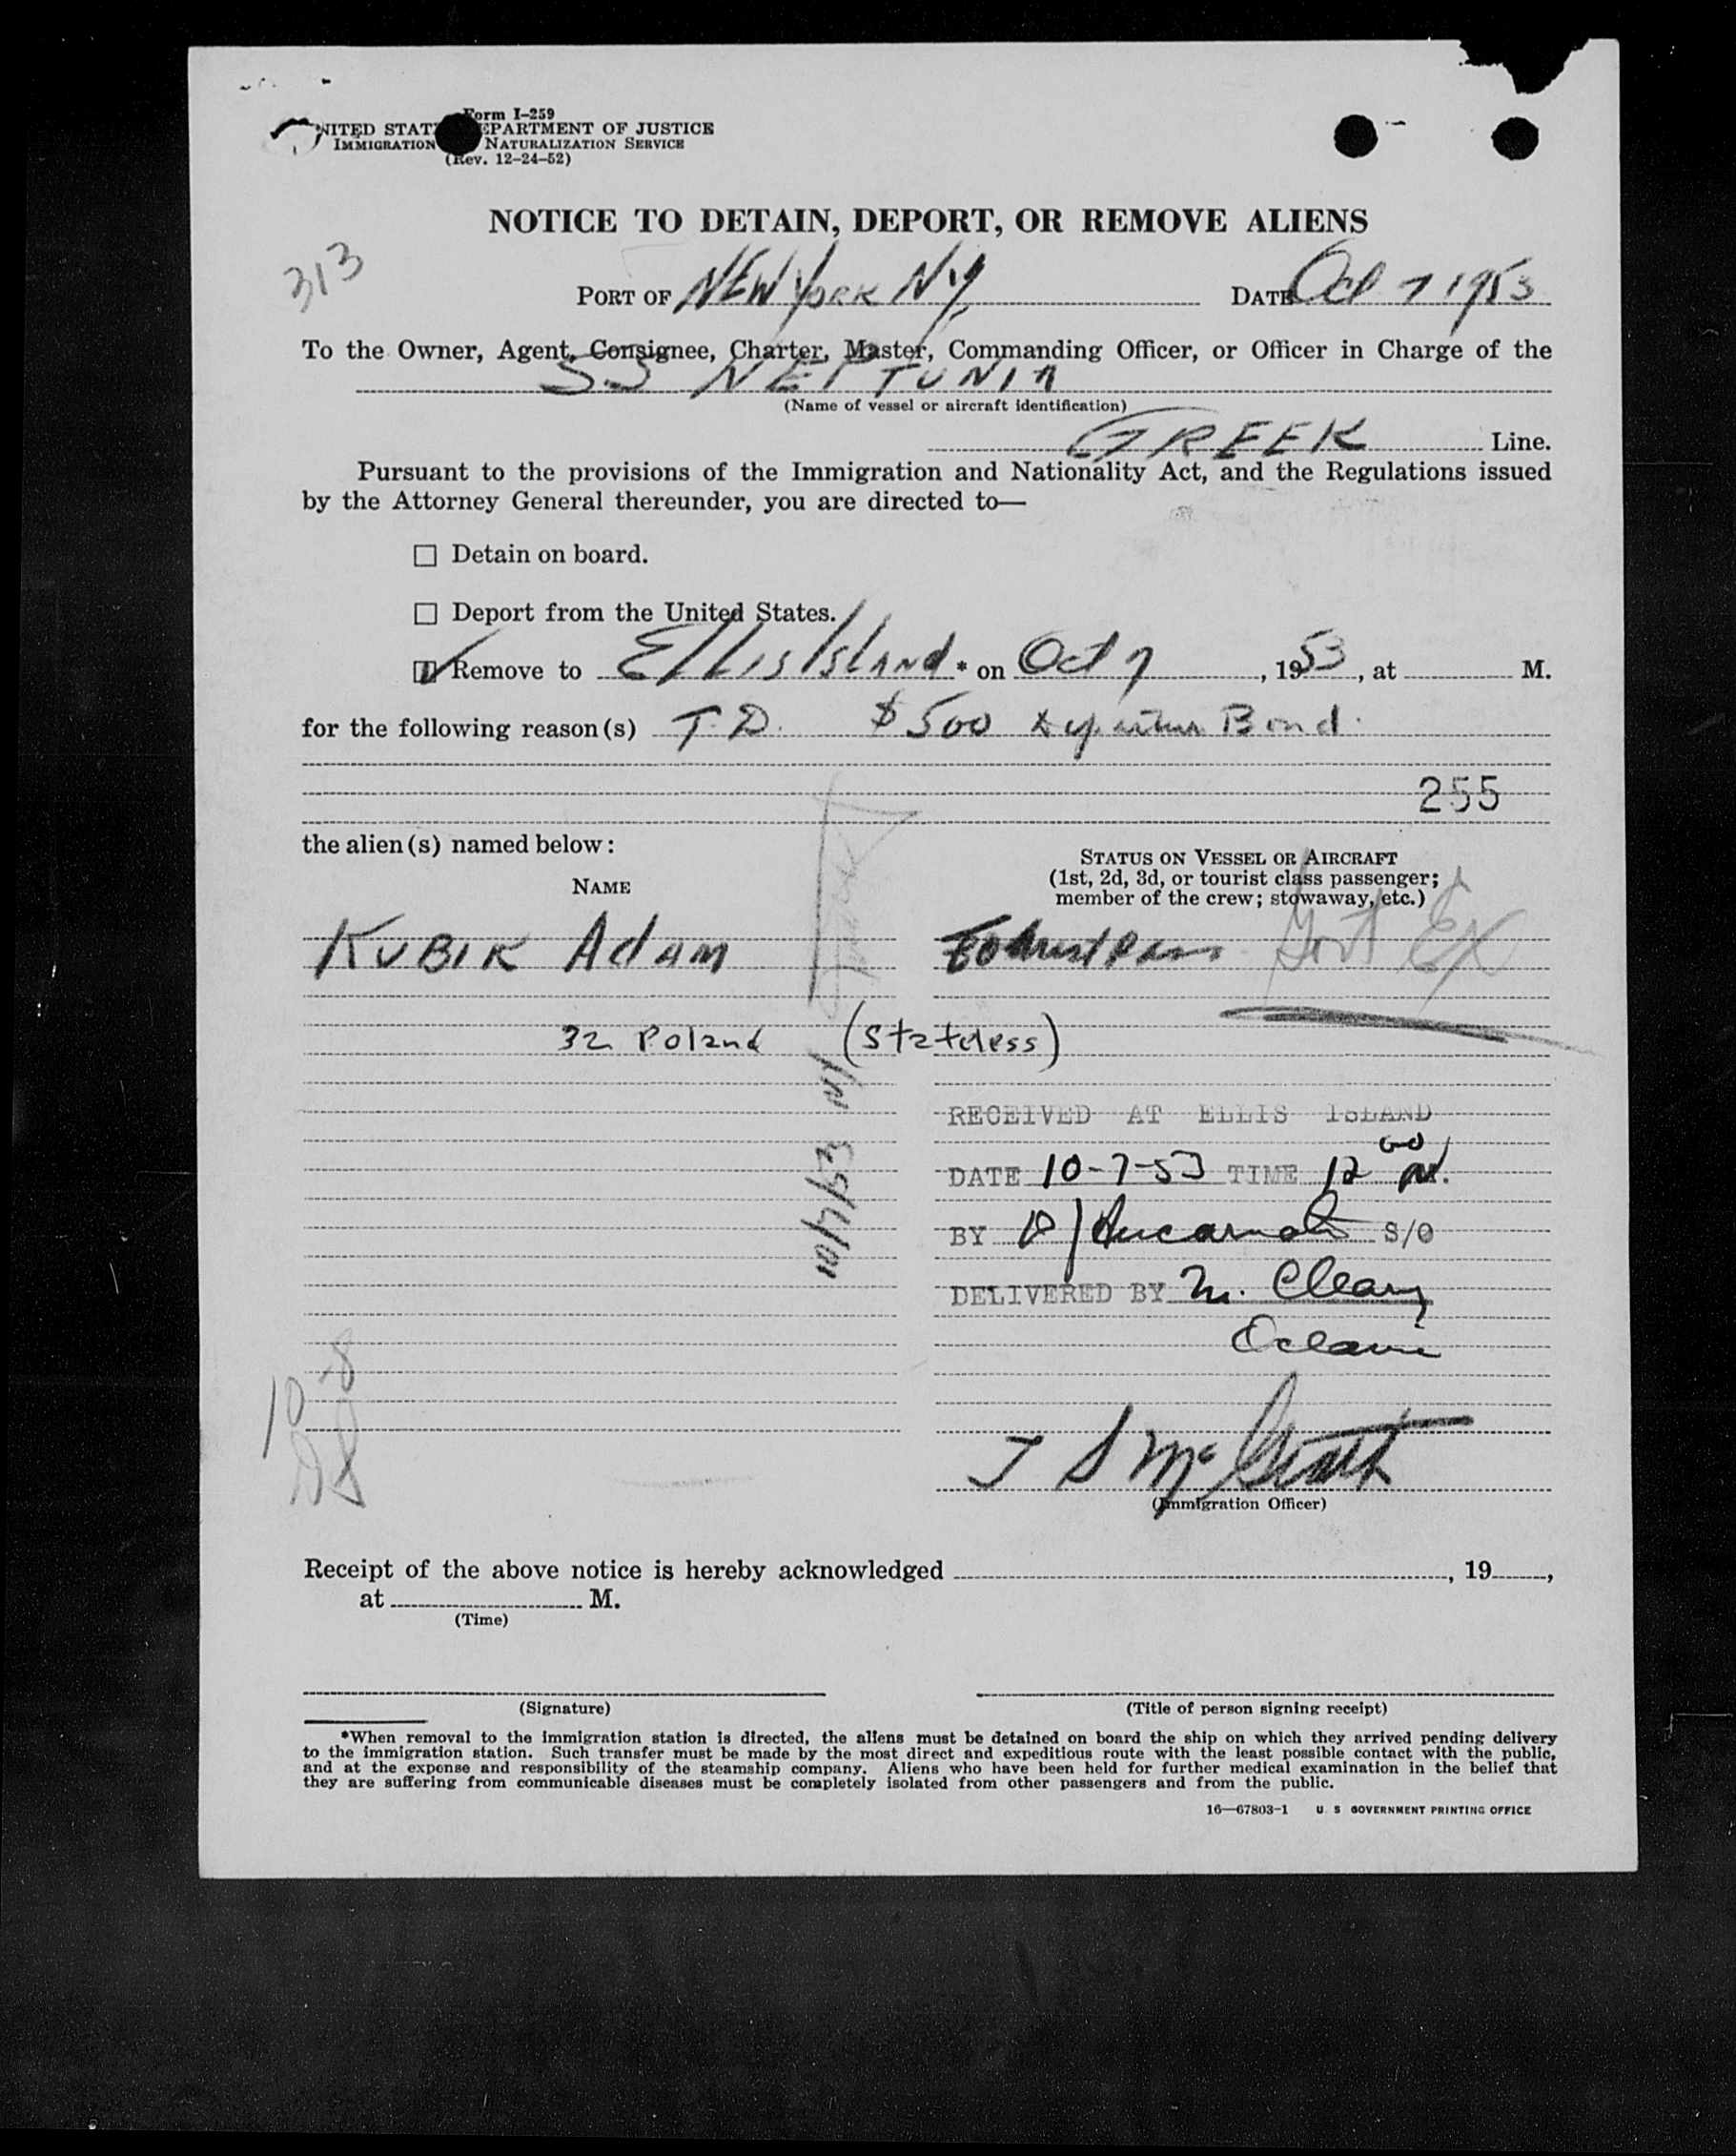 Form I-259
UNITED STATES DEPARTMENT OF JUSTICE
IMMIGRATION NATURALIZATION SERVICE
(Rev. 12-24-52)
NOTICE TO DETAIN, DEPORT, OR REMOVE ALIENS
313
PORT OF NEW YORK NY, DATE Oct 7 1953
To the Owner, Agent, Consignee, Charter, Master, Commanding Officer, or Officer in Charge of the
SS NEPTUNIA
(Name of vessel or aircraft identification)
GREEK Line.
Pursuant to the provisions of the Immigration and Nationality Act, and the Regulations issued
by the Attorney General thereunder, you are directed to—
Detain on board.
Deport from the United States.
Remove to Ellis Island * on Oct 7, 1953, at M.
for the following reason(s) T.D. $500 Departure Bond.
255
the alien(s) named below:
STATUS ON VESSEL OR AIRCRAFT
(1st, 2d, 3d, or tourist class passenger;
member of the crew; stowaway, etc.)
NAME
KUBIK Adam Tourist Pass Govt EX
32 Poland (Stateless)
10/7/53
RECEIVED AT ELLIS ISLAND
DATE 10-7-53 TIME 12 00 N.
BY S/O
DELIVERED BY M. Cleary
10-8
T S McGrath
(Immigration Officer)
Receipt of the above notice is hereby acknowledged , 19 ,
at M.
(Time)
(Signature) (Title of person signing receipt)
*When removal to the immigration station is directed, the aliens must be detained on board the ship on which they arrived pending delivery
to the immigration station. Such transfer must be made by the most direct and expeditious route with the least possible contact with the public,
and at the expense and responsibility of the steamship company. Aliens who have been held for further medical examination in the belief that
they are suffering from communicable diseases must be completely isolated from other passengers and from the public.
16—67803-1 U. S. GOVERNMENT PRINTING OFFICE